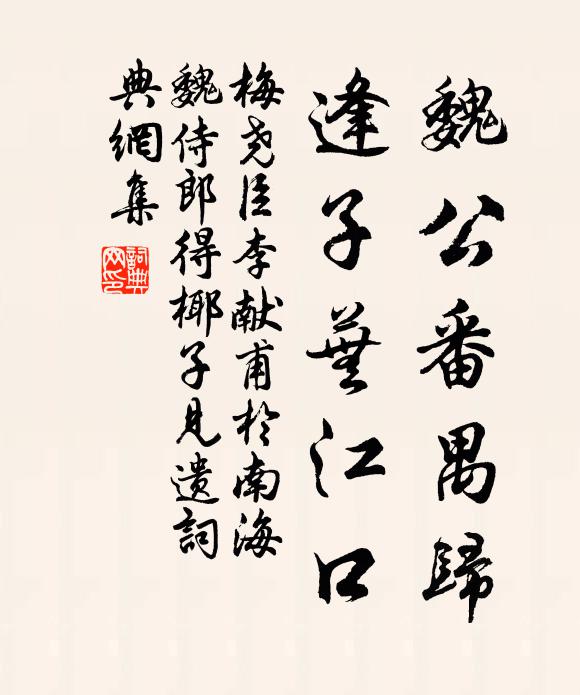 魏公番禺歸
逢子蕪江口
梅尧臣李献甫於南海
魏侍郎得椰子見遺詞
典網集
詞典
网印